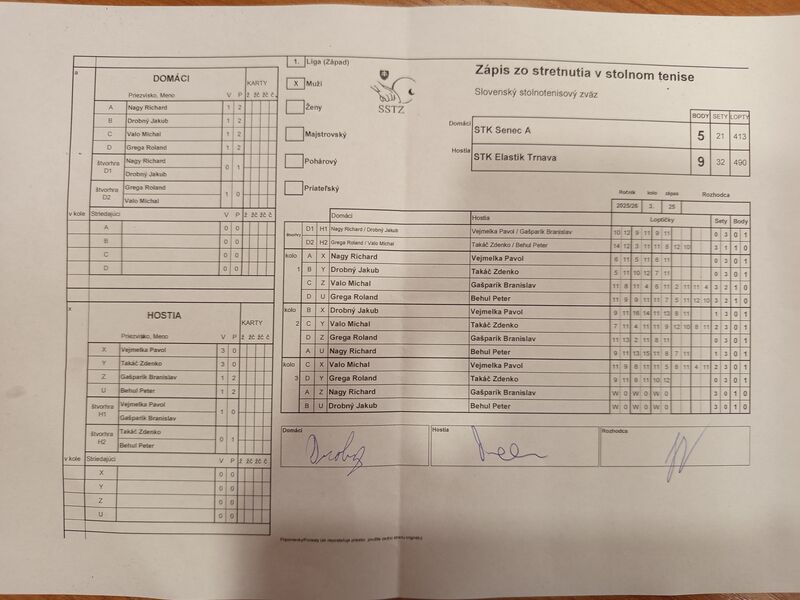 1. Liga (Západ)
X Muži
Ženy
Majstrovský
Pohárový
Priateľský
SSTZ
Zápis zo stretnutia v stolnom tenise
Slovenský stolnotenisový zväz
BODY SETY LOPTY
Domáci STK Senec A 5 21 413
Hostia STK Elastik Trnava 9 32 490
Ročník kolo zápas Rozhodca
2025/26 3. 25
DOMÁCI
KARTY
Priezvisko, Meno V P ž žč žč č
A Nagy Richard 1 2
B Drobný Jakub 1 2
C Valo Michal 1 2
D Grega Roland 1 2
štvorhra D1 Nagy Richard 0 1
Drobný Jakub
štvorhra D2 Grega Roland 1 0
Valo Michal
v kole Striedajúci V P ž žč žč č
A 0 0
B 0 0
C 0 0
D 0 0
HOSTIA
KARTY
Priezvisko, Meno V P ž žč žč č
X Vejmelka Pavol 3 0
Y Takáč Zdenko 3 0
Z Gašparik Branislav 1 2
U Behul Peter 1 2
štvorhra H1 Vejmelka Pavol 1 0
Gašparik Branislav
štvorhra H2 Takáč Zdenko 0 1
Behul Peter
v kole Striedajúci V P ž žč žč č
X 0 0
Y 0 0
Z 0 0
U 0 0
Domáci Hostia Loptičky Sety Body
D1 H1 Nagy Richard / Drobný Jakub Vejmelka Pavol / Gašparik Branislav 10 12 9 11 9 11 0 3 0 1
D2 H2 Grega Roland / Valo Michal Takáč Zdenko / Behul Peter 14 12 3 11 11 8 12 10 3 1 1 0
kolo A X Nagy Richard Vejmelka Pavol 6 11 5 11 6 11 0 3 0 1
1 B Y Drobný Jakub Takáč Zdenko 5 11 10 12 7 11 0 3 0 1
C Z Valo Michal Gašparik Branislav 11 8 11 4 6 11 2 11 11 4 3 2 1 0
D U Grega Roland Behul Peter 11 9 9 11 11 7 5 11 12 10 3 2 1 0
kolo B X Drobný Jakub Vejmelka Pavol 9 11 16 14 11 13 8 11 1 3 0 1
2 C Y Valo Michal Takáč Zdenko 7 11 11 11 9 12 10 8 11 2 3 0 1
D Z Grega Roland Gašparik Branislav 11 13 2 11 8 11 0 3 0 1
A U Nagy Richard Behul Peter 9 11 13 15 11 8 7 11 1 3 0 1
kolo C X Valo Michal Vejmelka Pavol 11 9 8 11 11 5 8 11 4 11 2 3 0 1
3 D Y Grega Roland Takáč Zdenko 9 11 11 10 12 0 3 0 1
A Z Nagy Richard Gašparik Branislav W 0 W 0 W 0 3 0 1 0
B U Drobný Jakub Behul Peter W 0 W 0 W 0 3 0 1 0
Domáci Hostia Rozhodca